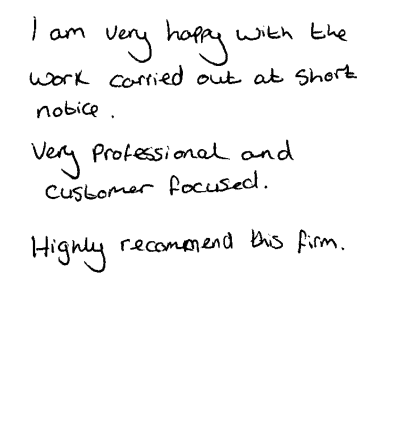 I am very happy with the
work carried out at short
notice.
Very professional and
customer focused.
Highly recommend this firm.